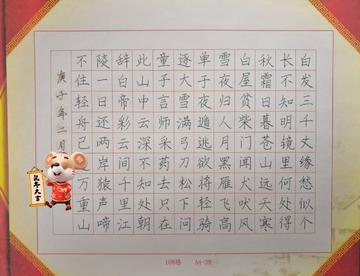 白发三千丈缘愁似个
长不知明镜里何处得
秋霜日暮苍山远天寒
白屋贫柴门闻犬吠风
雪夜归人月黑雁飞高
单于夜遁逃欲将轻骑
逐大雪满弓刀松下问
童子言师采药去只在
此山中云深不知处朝
辞白帝彩云间千里江
陵一日还两岸猿声啼
不住轻舟已过万重山
庚子年二月
鼠年大吉
108格